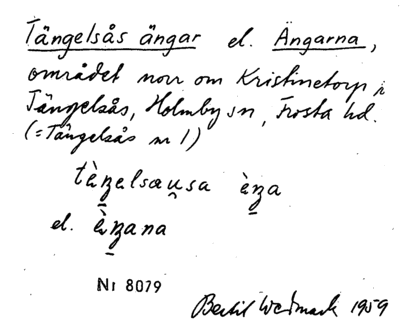 Tängelsås ängar el. Ängarna,
området norr om Kristinetorp i
Tängelsås, Holmby sn, Frosta hd.
(=Tängelsås nr 1)
tèŋelsau̯sa èŋa
el. èŋana
Nr 8079
Bertil Wedmark 1959